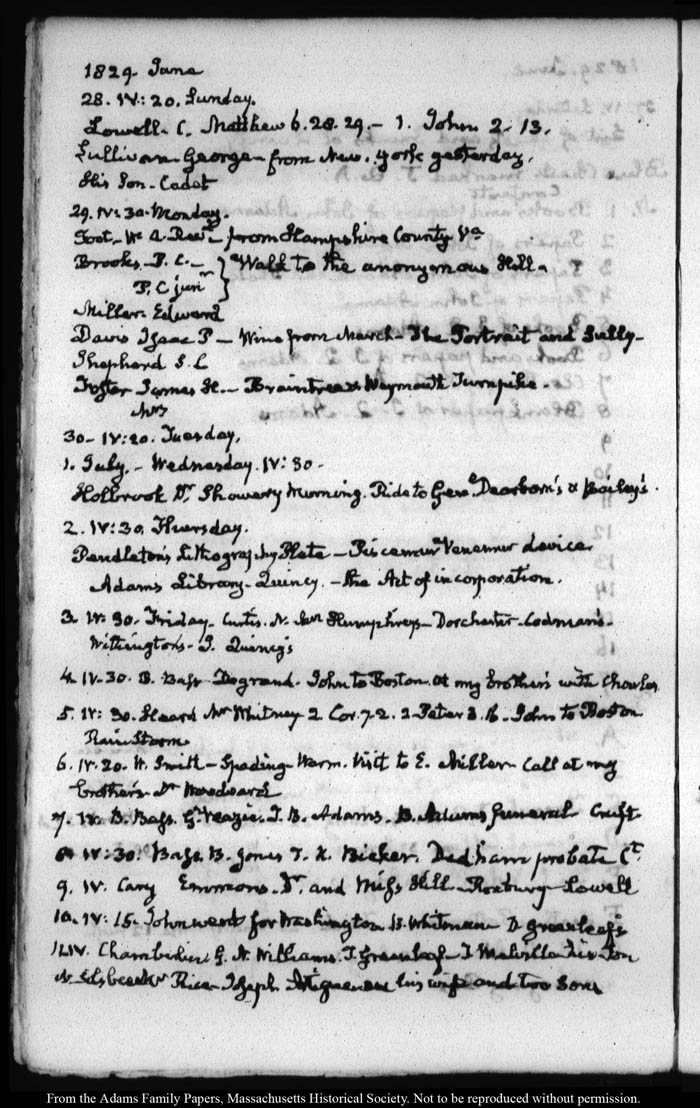 1829. June
28. IV: 20. Sunday.
Lowell. C. Matthew 6. 28. 29. – 1. John 2. 13.
Sullivan George – from New. York yesterday.
His Son – Cadet
29. IV: 30. Monday.
Foot – W. from Hampshire County Va
Brooks – P. C. – } Walk to the anonymous Hill –
P. C junr
Miller. Edward
Davis Isaac P – Wine from March – The Portrait and Sully –
Shepherd S. C
Foster James H. – Braintree & Weymouth Turnpike.
Mrs
30 – IV: 20. Tuesday.
1. July. – Wednesday. IV: 30 –
Holbrook Dr. Showery Morning. Ride to Genl Dearborn's & Bailey's.
2. IV: 30. Thursday.
Pendleton's Lithography Plate – Piscemur Venemur device
Adams Library – Quincy. – the Act of incorporation.
3. IV: 30 – Friday – Curtis. N. Humphreys – Dorchester – Codman's –
Withington's – J. Quincy's
4. IV. 30. B. Bass Degrand. John to Boston. at my brother's with Charles
5. IV: 30. Heard Mr Whitney 2 Cor. 7. 2. 2 Peter 3. John to Boston
Rain Storm
6. IV. 20. W. Smith – Spading – Warm. Visit to E. Miller – Call at my
brother's – Dr Woodward
7. IV. B. Bass. G. Veazie. T. B. Adams. B. Adams funeral Cruft
8. IV: 30. Bass. B. Jones T. K. Dedham probate Ct.
9. IV. Cary Emmons. Dr. and Miss Hill – Roxbury – Lowell
10. IV: 15. John went for Washington. Whitman D Greenleaf's
11. IV. G. N. Williams. T. Greenleaf – his Son
Rice – Joseph his wife and two Sons
From the Adams Family Papers, Massachusetts Historical Society. Not to be reproduced without permission.